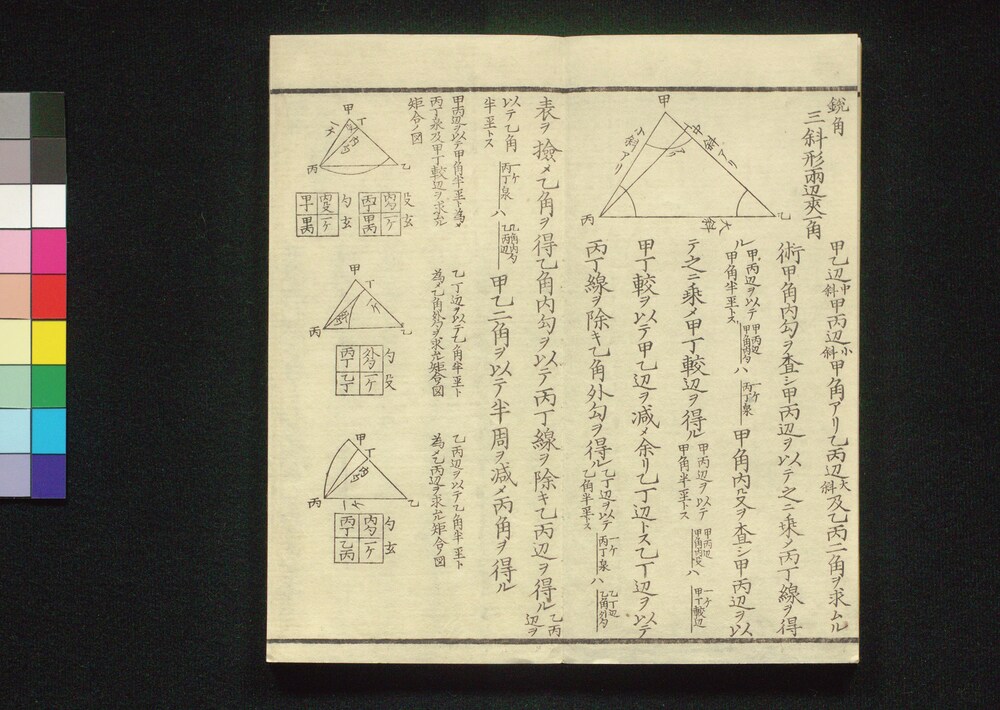 鋭角
三斜形兩辺夾一角
甲乙辺中斜甲丙辺小斜甲角アリ乙丙辺大斜及乙丙二角ヲ求ムル
術甲角内勾ヲ査シ甲丙辺ヲ以テ之ニ乗メ丙丁線ヲ得
ル甲丙辺ヲ以テ甲角半至トス 甲丙辺 甲角内勾 ハ 一ケ 丙丁泉 甲角内殳ヲ査シ甲丙辺ヲ以
テ之ニ乗メ甲丁較辺ヲ得ル甲丙辺ヲ以テ甲角半至トス 甲丙辺 甲角内殳 ハ 一ケ 甲丁較辺
甲丁較ヲ以テ甲乙辺ヲ减メ余リ乙丁辺トス乙丁辺ヲ以テ
丙丁線ヲ除キ乙角外勾ヲ得ル乙丁辺ヲ以テ乙角半至トス 一ケ 丙丁泉 ハ 乙丁辺 乙角外勾
甲
中斜アリ
小斜アリ
乙
丙
大斜
表ヲ撿メ乙角ヲ得乙角内勾ヲ以テ丙丁線ヲ除キ乙丙辺ヲ得ル乙丙辺ヲ
以テ乙角半至トス 一ケ 丙丁泉 ハ 乙角内勾 乙丙辺 甲乙二角ヲ以テ半周ヲ减メ丙角ヲ得ル
甲丙辺ヲ以テ甲角半至ト為メ
丙丁泉及甲丁較辺ヲ求ル
矩合ノ図
甲
丁
乙
丙
殳 玄
内殳 一ケ
甲丁 甲丙
勺 玄
内勺 一ケ
乙丁辺ヲ以テ乙角半至ト
為メ乙角外勺ヲ求ル矩合図
甲
丁
乙
丙
勺 殳
外勺 一ケ
丙丁 乙丁
乙丙辺ヲ以テ乙角半至ト
為メ乙丙辺ヲ求ル矩合ノ図
甲
丁
内勺
乙
丙
一ケ
勺 玄
内勺 一ケ
丙丁 乙丙